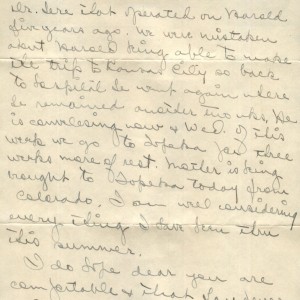 Dr. here that operated on Harold
five years ago. We were mistaken
about Harold being able to make
the trip to Kansas City so back
to hospital he went again where
he remained another two wks. He
is convalescing now & Wed. of this
week we go to Topeka for three
weeks more of rest. Mother is being
brought to Topeka today from
Colorado. I am well considering
every thing I have been thru
this summer.
I do hope dear you are
comfortable & that